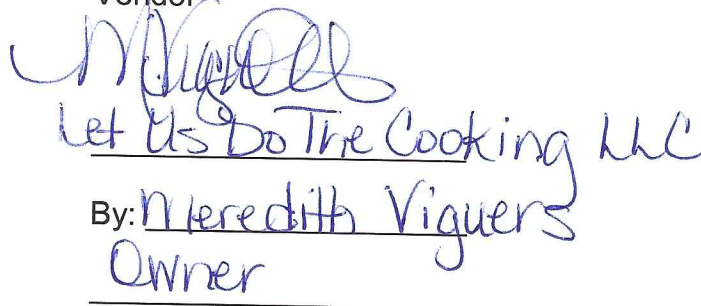 Vendor
Let Us Do The Cooking LLC
By: Meredith Viguers
Owner